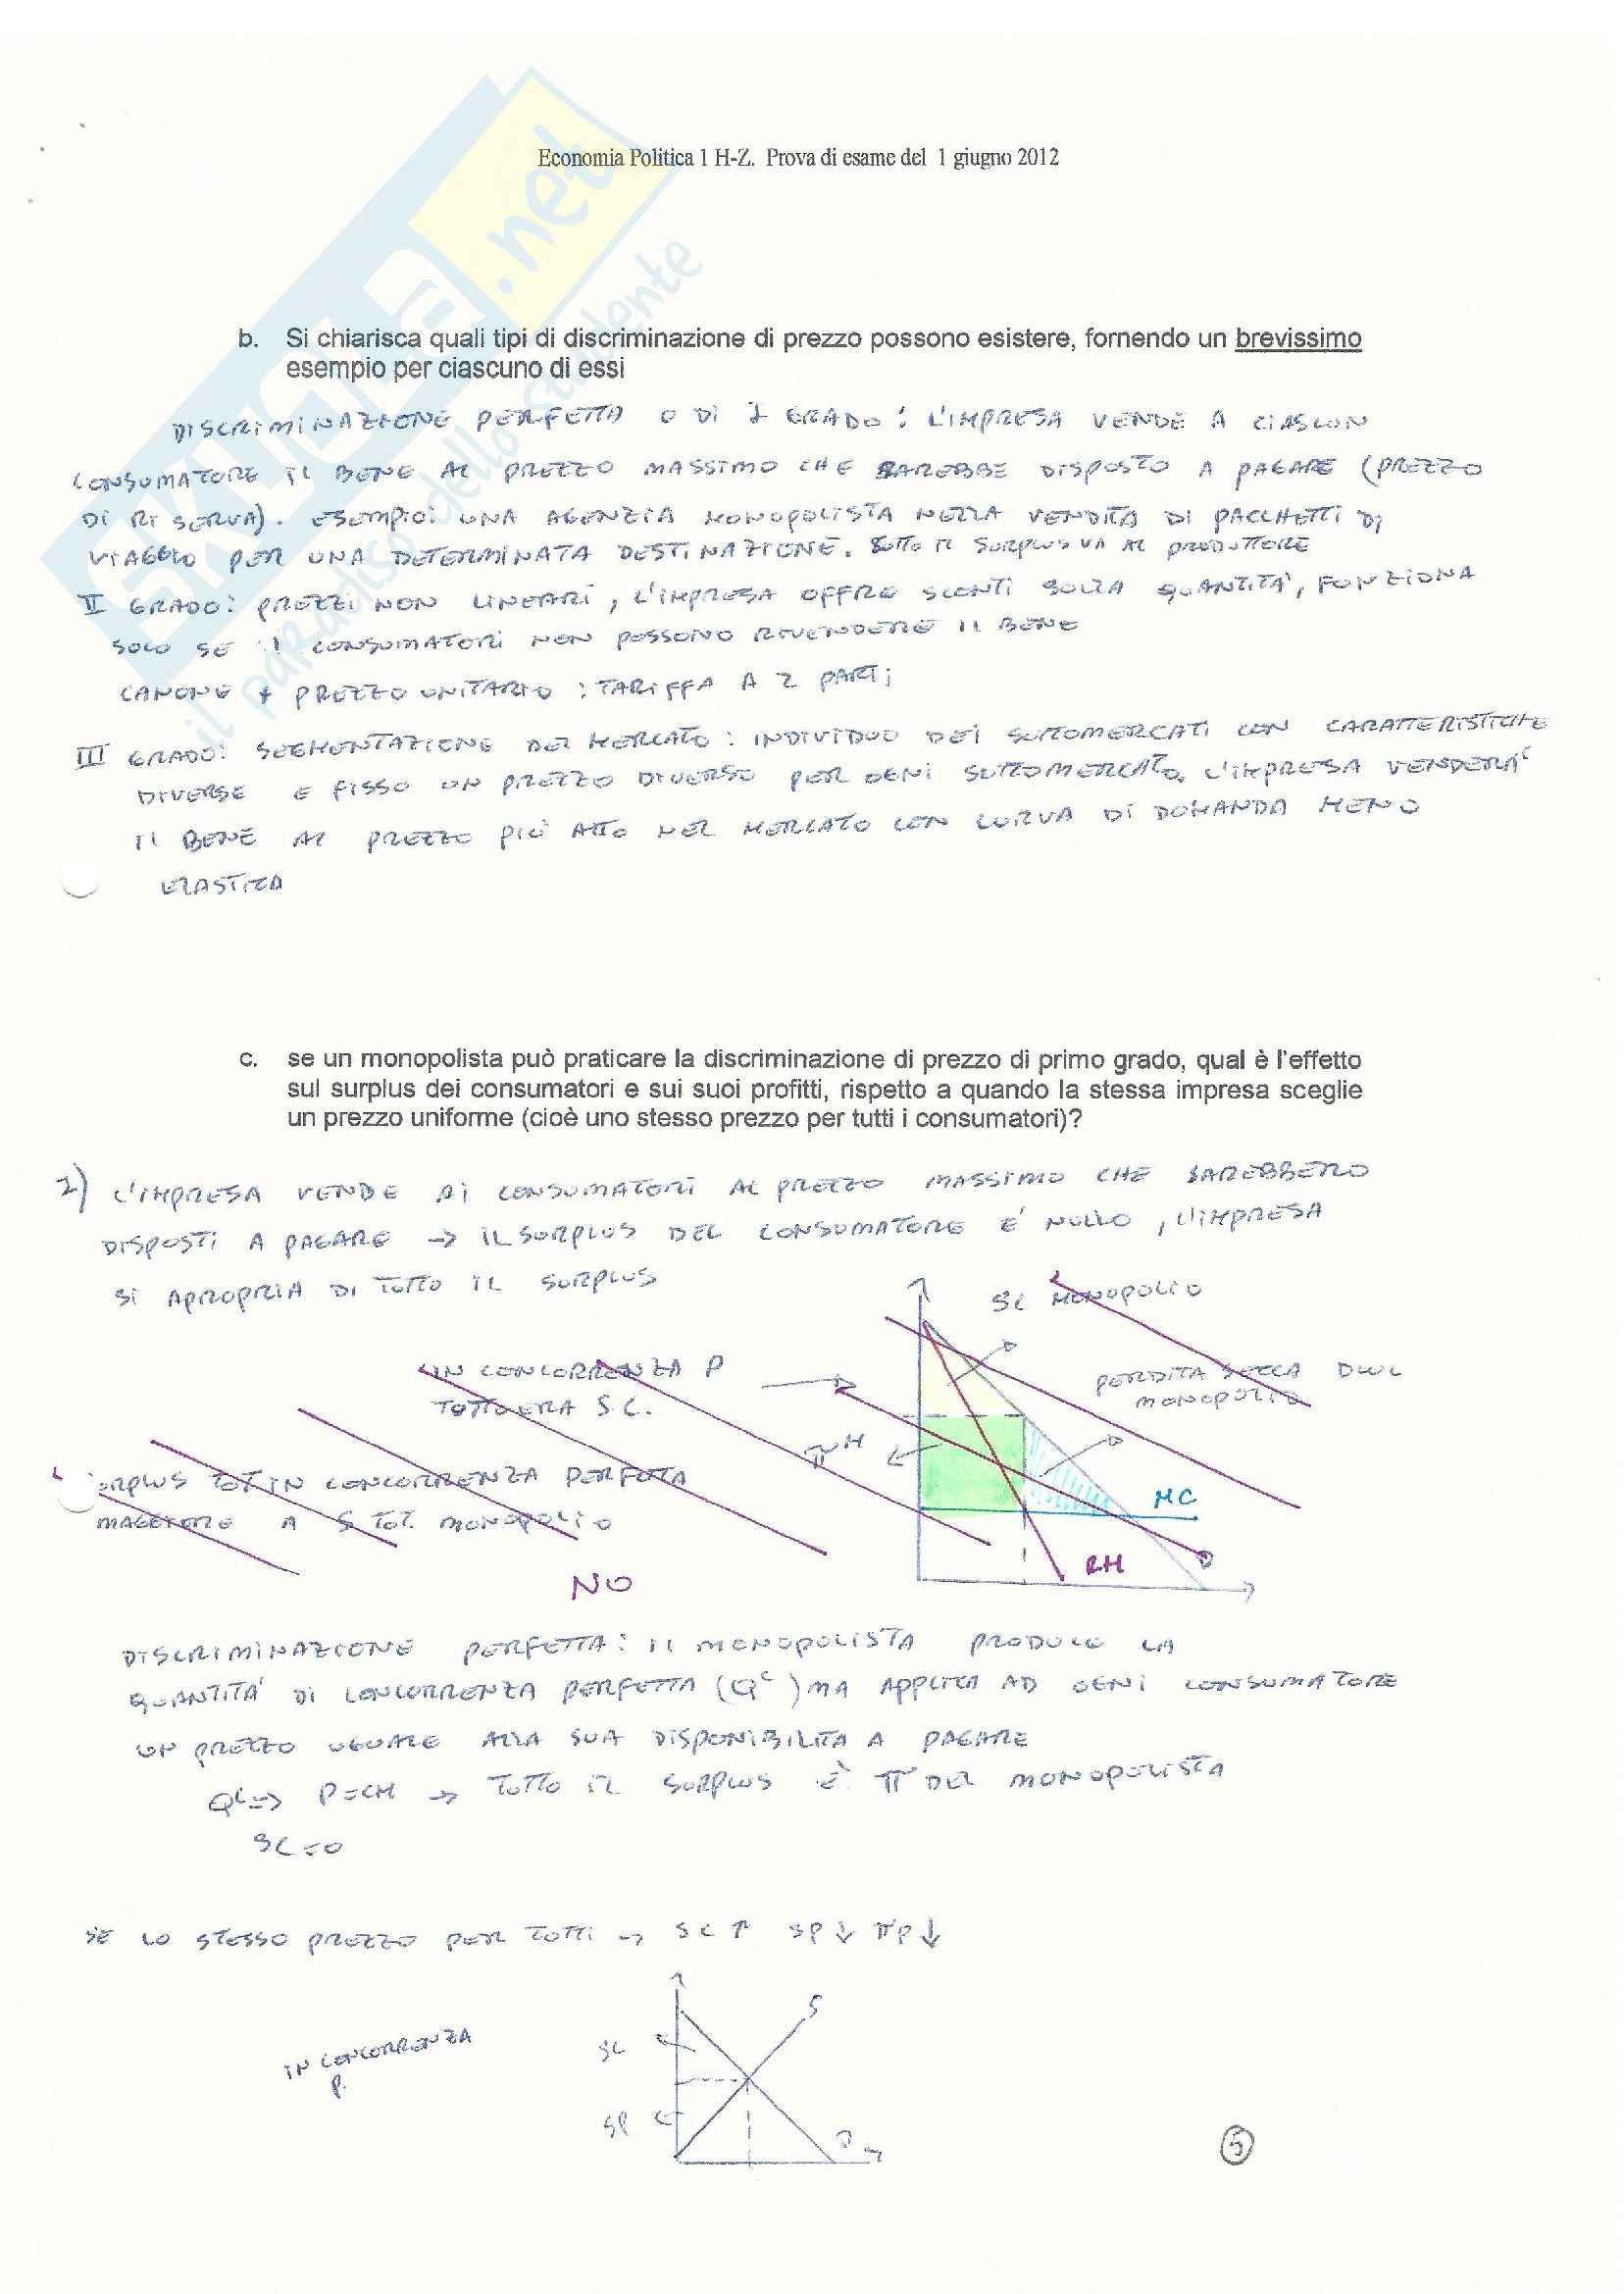 SKUOLA.net
il paradiso dello studente
Economia Politica 1 H-Z. Prova di esame del 1 giugno 2012
b. Si chiarisca quali tipi di discriminazione di prezzo possono esistere, fornendo un brevissimo
esempio per ciascuno di essi
DISCRIMINAZIONE PERFETTA O DI I GRADO: L'IMPRESA VENDE A CIASCUN
CONSUMATORE IL BENE AL PREZZO MASSIMO CHE SAREBBE DISPOSTO A PAGARE (PREZZO
DI RISERVA). ESEMPIO: UNA AGENZIA MONOPOLISTA NELLA VENDITA DI PACCHETTI DI
VIAGGIO PER UNA DETERMINATA DESTINAZIONE. TUTTO IL SURPLUS VA AL PRODUTTORE
II GRADO: PREZZI NON LINEARI, L'IMPRESA OFFRE SCONTI SULLA QUANTITA', FUNZIONA
SOLO SE I CONSUMATORI NON POSSONO RIVENDERE IL BENE
CANONE + PREZZO UNITARIO : TARIFFA A 2 PARTI
III GRADO: SEGMENTAZIONE DEL MERCATO: INDIVIDUO DEI SOTTOMERCATI CON CARATTERISTICHE
DIVERSE E FISSO UN PREZZO DIVERSO PER OGNI SOTTOMERCATO. L'IMPRESA VENDERA'
IL BENE AL PREZZO PIÙ ALTO NEL MERCATO CON CURVA DI DOMANDA MENO
ELASTICA
c. se un monopolista può praticare la discriminazione di prezzo di primo grado, qual è l'effetto
sul surplus dei consumatori e sui suoi profitti, rispetto a quando la stessa impresa sceglie
un prezzo uniforme (cioè uno stesso prezzo per tutti i consumatori)?
2) L'IMPRESA VENDE AI CONSUMATORI AL PREZZO MASSIMO CHE SAREBBERO
DISPOSTI A PAGARE → IL SURPLUS DEL CONSUMATORE E' NULLO, L'IMPRESA
SI APROPRIA DI TUTTO IL SURPLUS
SC MONOPOLIO
IN CONCORRENZA P
TUTTO ERA S.C.
PERDITA SECCA DWL
MONOPOLIO
π^M
SURPLUS TOT IN CONCORRENZA PERFETTA
MAGGIORE A S TOT. MONOPOLIO
MC
D
RM
NO
DISCRIMINAZIONE PERFETTA: IL MONOPOLISTA PRODUCE LA
QUANTITA' DI CONCORRENZA PERFETTA (Q^C) MA APPLICA AD OGNI CONSUMATORE
UN PREZZO UGUALE ALLA SUA DISPONIBILITA A PAGARE
Q^C => P=CM → TUTTO IL SURPLUS È π DEL MONOPOLISTA
SC = 0
SE LO STESSO PREZZO PER TUTTI → SC ↑ SP ↓ πP ↓
S
IN CONCORRENZA
P.
SC
SP
D
5